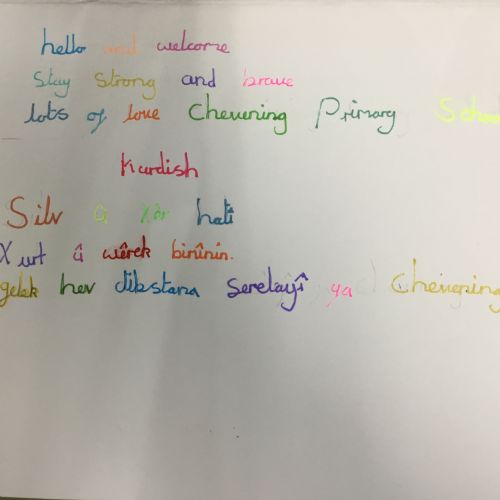 hello and welcome
Stay strong and brave
lots of love Chevening Primary School
Kurdish
Silv û Xêr hatî
Xurt û wêrek binînin.
gelek hev dibstana serelayî ya Chevening